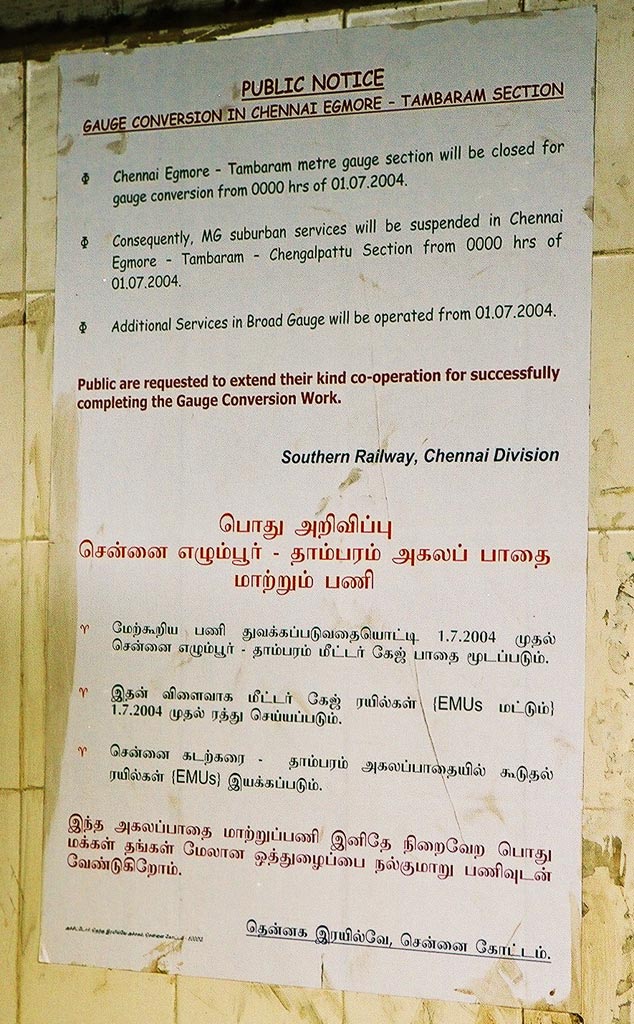 PUBLIC NOTICE
GAUGE CONVERSION IN CHENNAI EGMORE – TAMBARAM SECTION
Φ Chennai Egmore – Tambaram metre gauge section will be closed for
gauge conversion from 0000 hrs of 01.07.2004.
Φ Consequently, MG suburban services will be suspended in Chennai
Egmore – Tambaram – Chengalpattu Section from 0000 hrs of
01.07.2004.
Φ Additional Services in Broad Gauge will be operated from 01.07.2004.
Public are requested to extend their kind co-operation for successfully
completing the Gauge Conversion Work.
Southern Railway, Chennai Division
பொது அறிவிப்பு
சென்னை எழும்பூர் - தாம்பரம் அகலப் பாதை
மாற்றும் பணி
♈ மேற்கூறிய பணி துவக்கப்படுவதையொட்டி 1.7.2004 முதல்
சென்னை எழும்பூர் - தாம்பரம் மீட்டர் கேஜ் பாதை மூடப்படும்.
♈ இதன் விளைவாக மீட்டர் கேஜ் ரயில்கள் {EMUs மட்டும்}
1.7.2004 முதல் ரத்து செய்யப்படும்.
♈ சென்னை கடற்கரை - தாம்பரம் அகலப்பாதையில் கூடுதல்
ரயில்கள் {EMUs} இயக்கப்படும்.
இந்த அகலப்பாதை மாற்றுப்பணி இனிதே நிறைவேற பொது
மக்கள் தங்கள் மேலான ஒத்துழைப்பை நல்குமாறு பணிவுடன்
வேண்டுகிறோம்.
தென்னக இரயில்வே, சென்னை கோட்டம்.